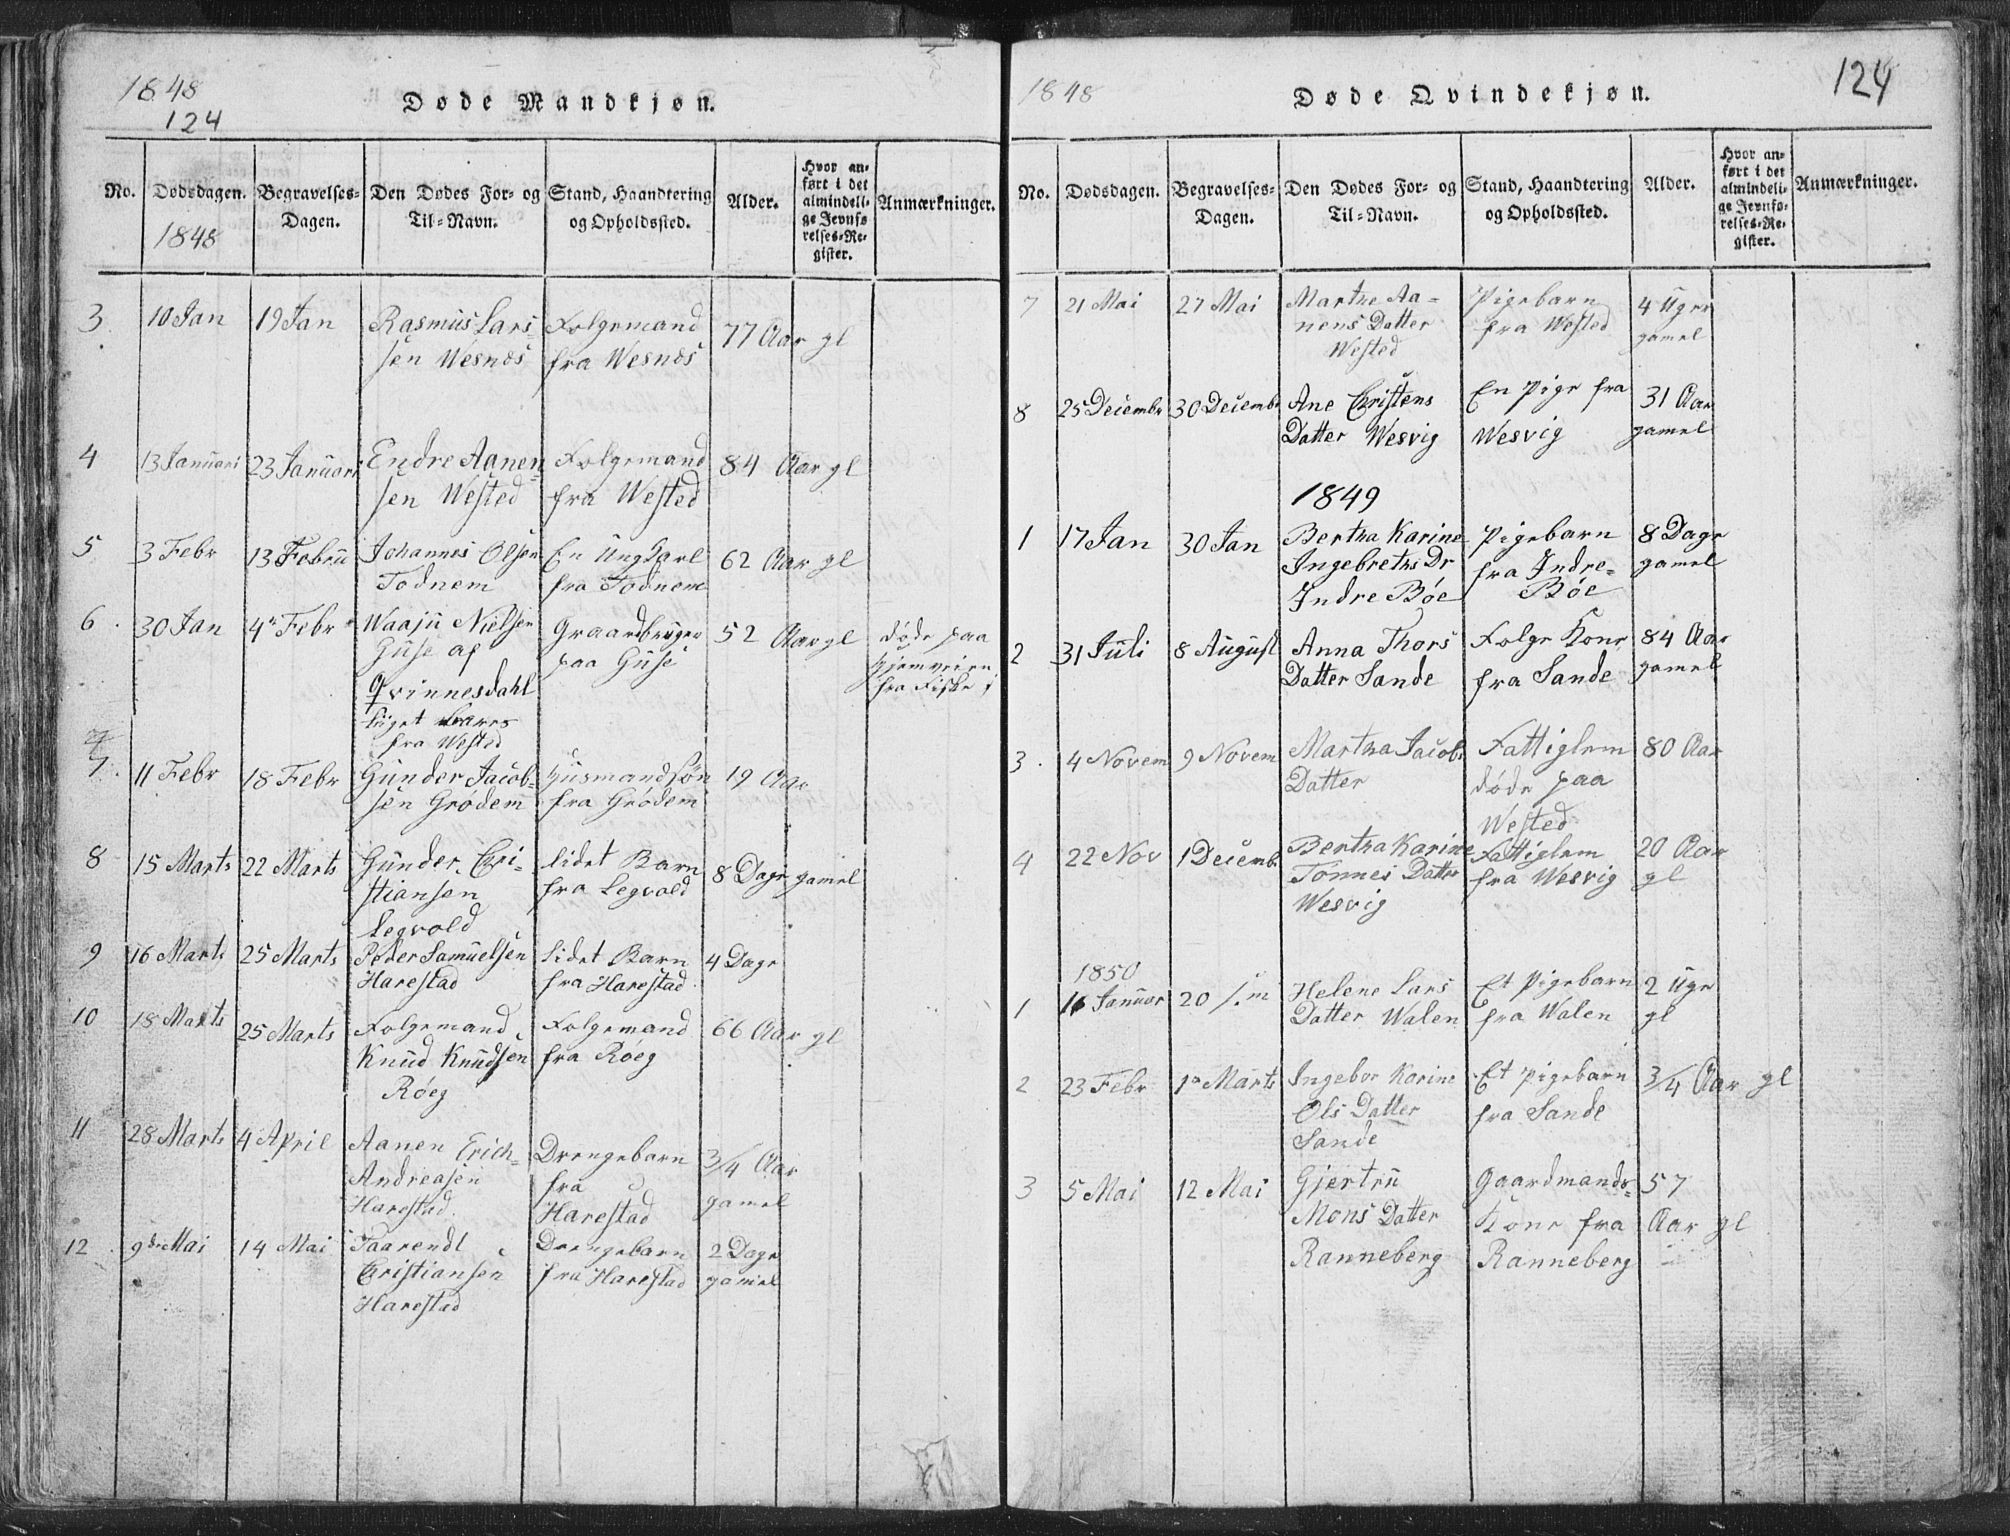 1848
124
Døde Mandkjøn.
No. Dødsdagen. Begravelses-Dagen. Den Dødes For- og Til-Navn. Stand, Haandtering og Opholdssted. Alder. Hvor anført i det almindelige Jevnførelses-Register. Anmærkninger.
1848
3. 10 Jan 19 Jan Rasmus Lars- Folgemand 77 Aar gl
sen Wesnes fra Wesnes
4 13 Januari 23 Januari Endre Aanen- Folgemand 84 Aar gl
sen Wested fra Wested
5 3 Febr 13 Febru Johannes Olsen En Ungkarl 62 Aar gl
Todnem fra Todnem
6. 30 Jan 4de Febr Waaju Nielsen Graardbruger 52 Aar gl døde paa
Guse af paa Guse hjemveien
Qvinnesdahl fra Fiske
liiget bares
fra Wested
7. 11 Febr 18 Febr Gunder Jacob- Husmandsøn 19 Aar
sen Grødem fra Grødem
8 15 Marts 22 Marts Gunder Cri- lidet Barn 8 Dage gamel
stiansen fra Legvold
Legvold
9 16 Marts 25 Marts Peder Samuelsen lidet Barn 4 Dage
Harestad fra Harestad
10 18 Marts 25 Marts Folgemand Folgemand 66 Aar gl
Knud Knudsen fra Røeg
Røeg
11 28 Marts 4 April Aanen Erich- Drengebarn 3/4 Aar
Andreasen fra gamel
Harestad. Harestad
12. 9de Mai 14 Mai Taarendl Drengebarn 2 Dage
Cristiansen fra Harestad gamel
Harestad
1848
Døde Qvindekjøn.
124
No. Dødsdagen. Begravelses-Dagen. Den Dødes For- og Til-Navn. Stand, Haandtering og Opholdssted. Alder. Hvor anført i det almindelige Jevnførelses-Register. Anmærkninger.
7 21 Mai 27 Mai Marthe Aa- Pigebarn 4 Uger
nens Datter fra Wested gamel
Wested
8 25 Decembr 30 Decemb Ane Christens En Pige fra 31 Aar
Datter Wesvig Wesvig gamel
1849
1 17 Jan 30 Jan Bertha Karine Pigebarn 8 Dage
Ingebreths Dr fra Indre- gamel
Indre Bøe Bøe
2 31 Juli 8 August Anna Thors Folge Kone 84 Aar
Datter Sande fra Sande gamel
3. 4 Novem 9 Novem Martha Jacobs Fattiglem 80 Aar
Datter døde paa
Wested
4 22 Nov 1 Decemb Bertha Karine Fattiglem 20 Aar
Tonnes Datter fra Wesvig gl
Wesvig
1850
1 16 Januar 20 s.m Helene Lars Et Pigebarn 2 Uge
Datter Walen fra Walen gl
2 23 Febr 1ste Marts Ingebor Karine Et Pigebarn 3/4 Aar gl
Ols Datter fra Sande
Sande
3 5 Mai 12 Mai Gjertru Gaardmands- 57
Mons Datter Kone fra Aar gl
Ranneberg Ranneberg